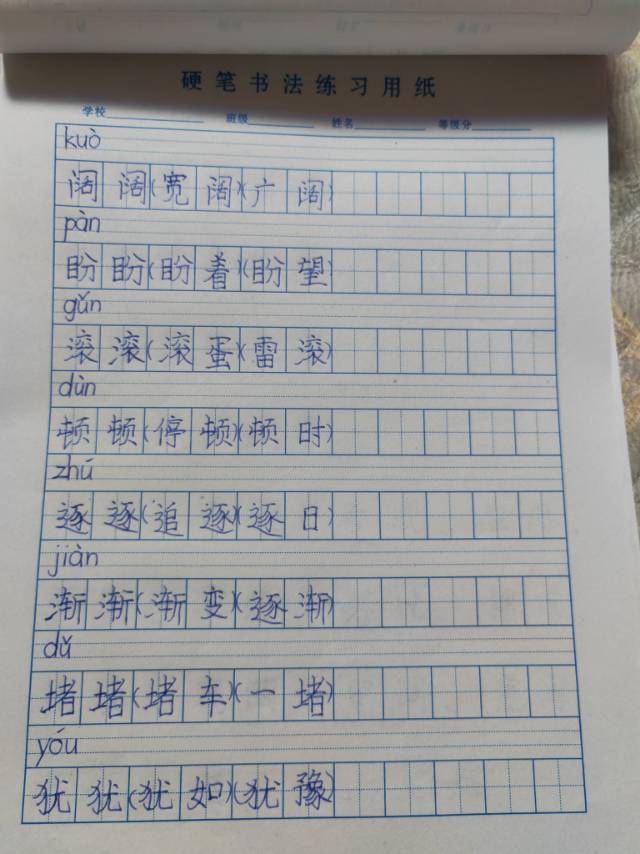 硬笔书法练习用纸
学校 班级 姓名 等级分
kuò
阔阔(宽阔)(广阔)
pàn
盼盼(盼着)(盼望)
gǔn
滚滚(滚蛋)(雷滚)
dùn
顿顿(停顿)(顿时)
zhú
逐逐(追逐)(逐日)
jiàn
渐渐(渐变)(逐渐)
dǔ
堵堵(堵车)(一堵)
yóu
犹犹(犹如)(犹豫)